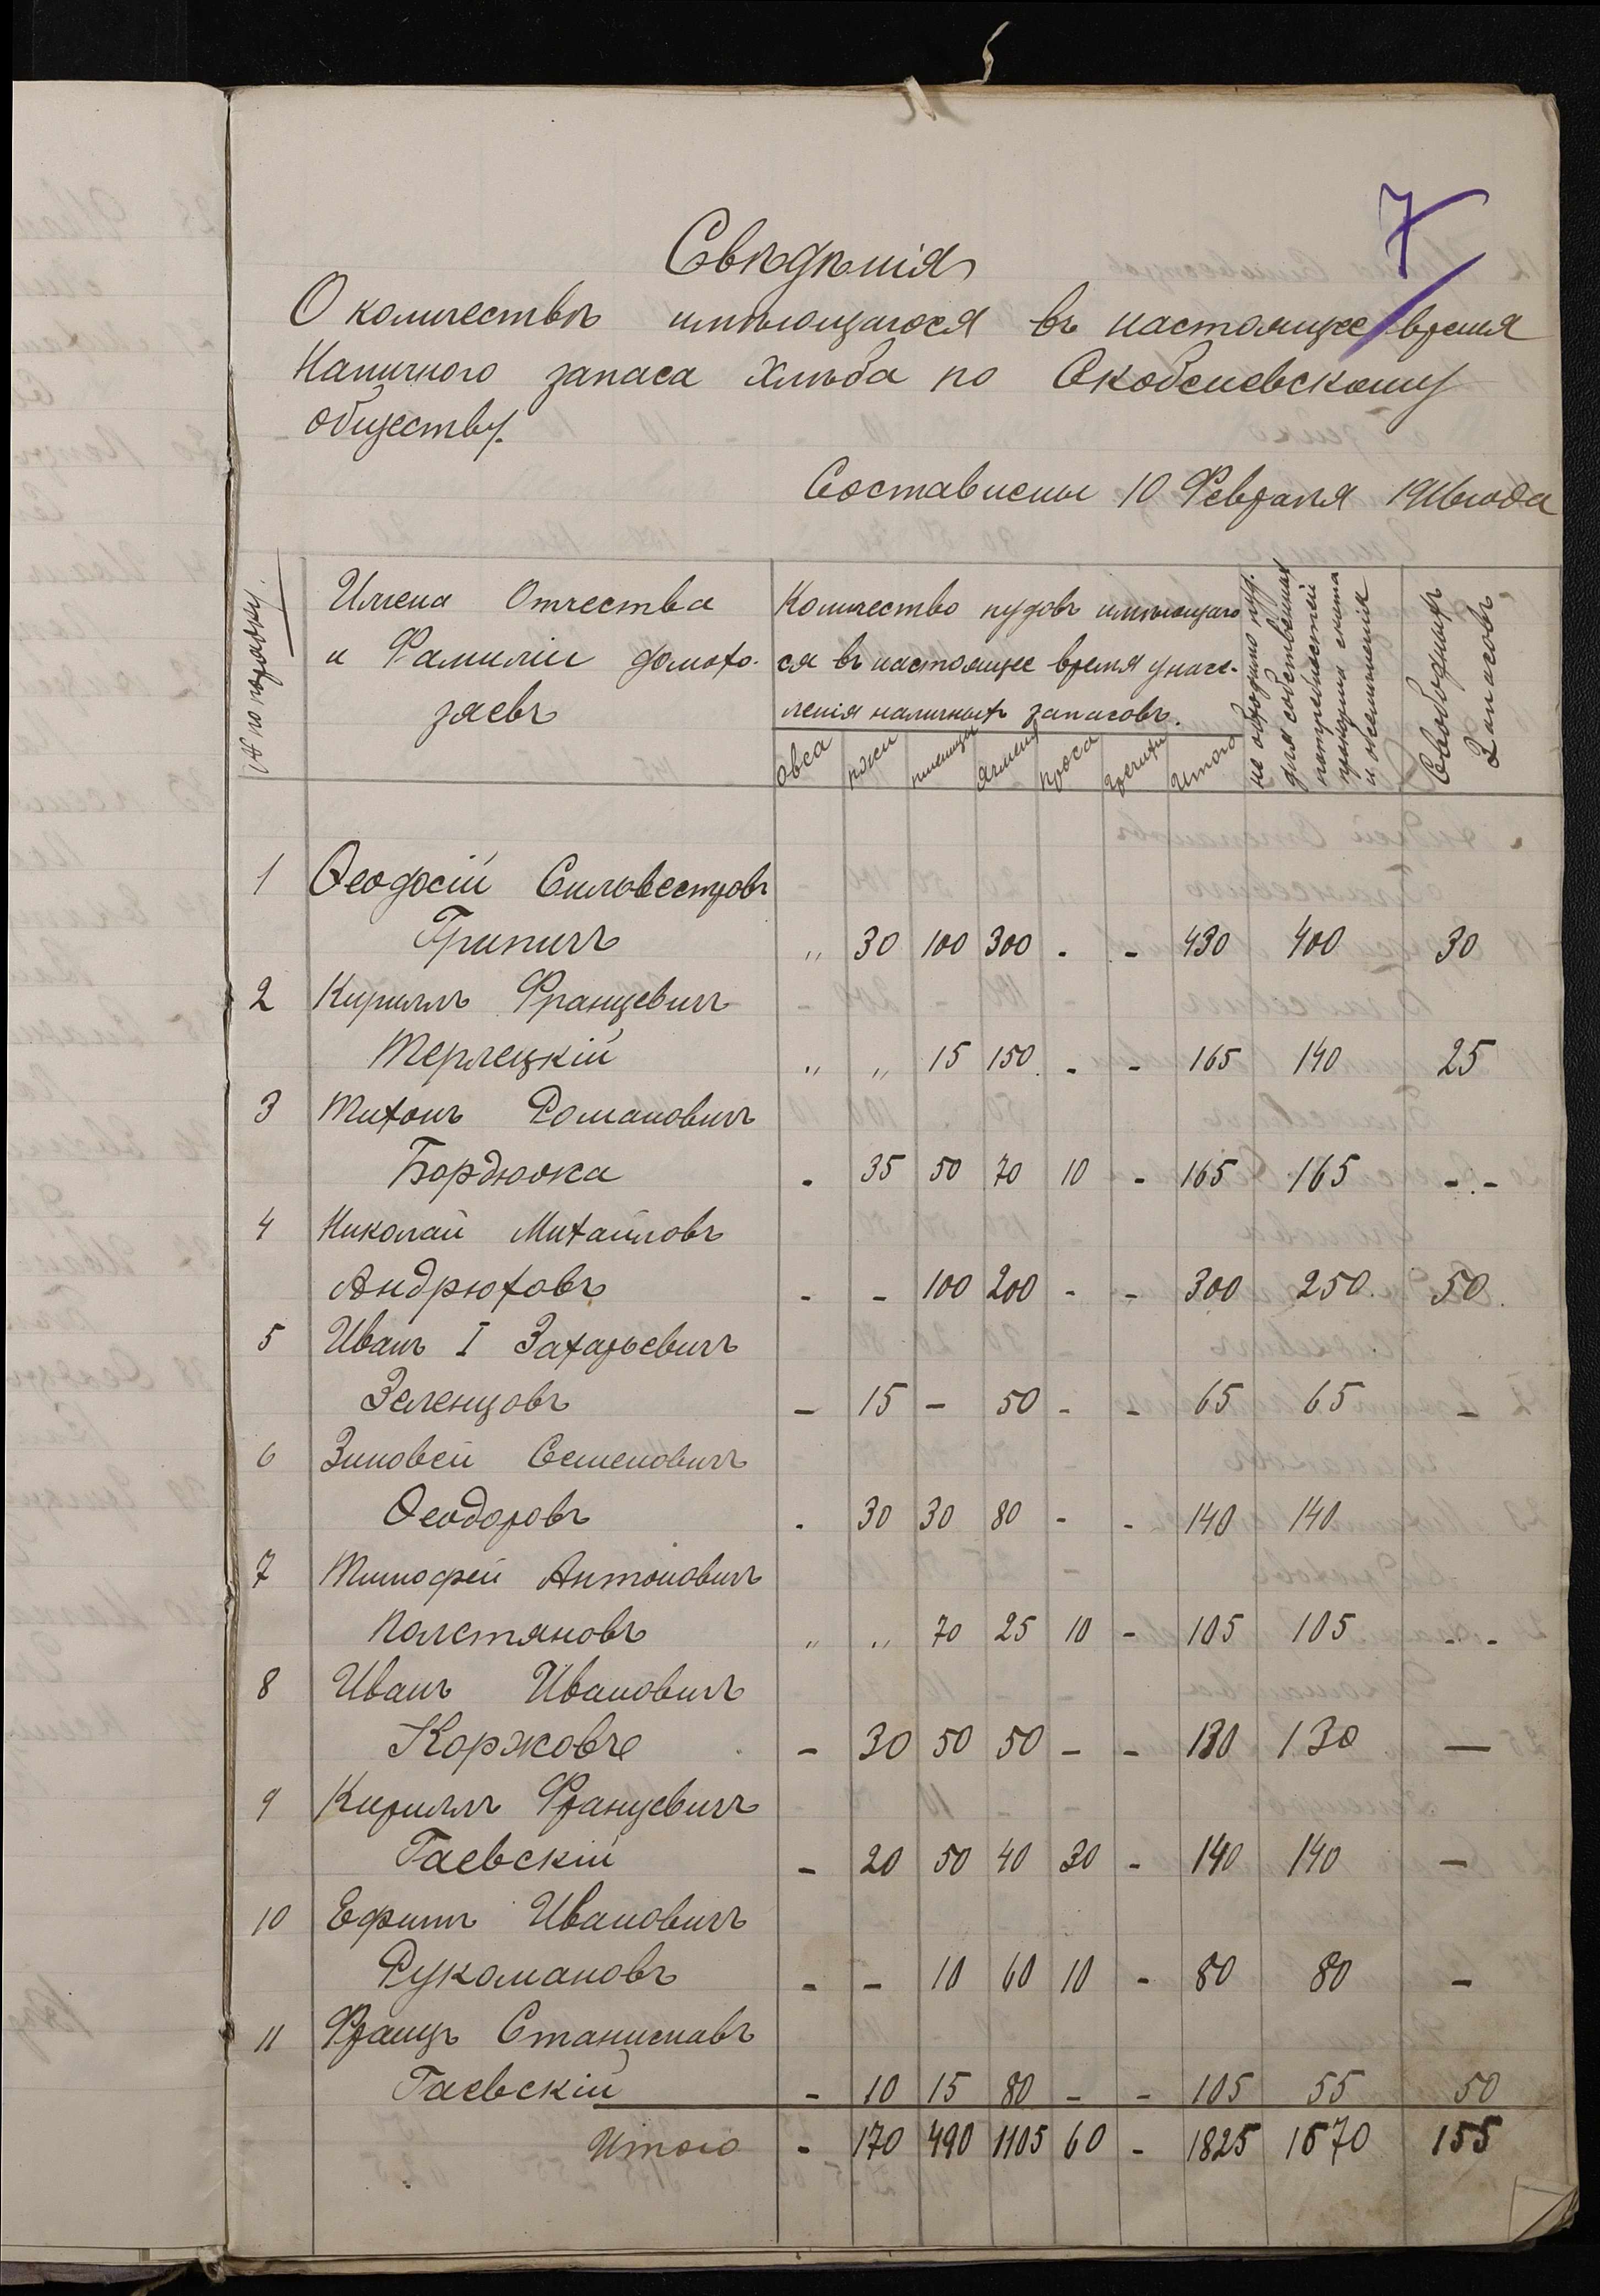 7
Свѣдѣнія
О количествѣ имѣющагося въ настоящее время
Наличного запаса хлѣба по Скобелевскому
обществу.
Составлены 10 Февраля 1916 года
№ по порядку.
Имена Отчества
и Фамиліи домохо-
зяевъ
Количество пудовъ имѣющаго
ся въ настоящее время у насе-
ленія наличныхъ запасовъ.
овса ржи пшеницы ячменя проса гречихи Итого
не обходимо пуд.
для собственныхъ
потребностей
прокорма скота
и обсѣмененія
Свободныхъ
Запасовъ
1 Ѳеодосій Сильвестровъ
Грипичъ „ 30 100 300 - - 430 400 30
2 Кириллъ Францевичъ
Терлецкій „ „ 15 150 - - 165 140 25
3 Тихонъ Романовичъ
Бордюжа - 35 50 70 10 - 165 165 - . -
4 Николай Михайловъ
Андрюховъ - - 100 200 - - 300 250. 50.
5 Иванъ I Захарьевичъ
Зеленцовъ - 15 - 50 - - 65 65 -
6 Зиновей Семеновичъ
Ѳеодоровъ - 30 30 80 - - 140 140
7 Тимофей Антоновичъ
Полстяновъ „ „ 70 25 10 - 105 105 - . -
8 Иванъ Ивановичъ
Коржовъ - 30 50 50 - - 130 130 —
9 Кириллъ Францевичъ
Гаевскій - 20 50 40 30 - 140 140 —
10 Ефимъ Ивановичъ
Рукомановъ - - 10 60 10 - 80 80 -
11 Францъ Станиславъ
Гаевскій - 10 15 80 - - 105 55 50
Итого - 170 490 1105 60 - 1825 1670 155